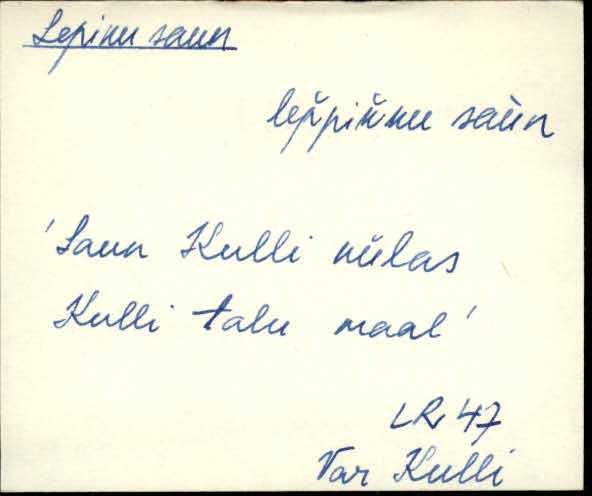 Lepinu saun
lep̆piǹnu saùn
'Saun Kulli külas
Kulli talu maal'
LR 47
Var Kulli